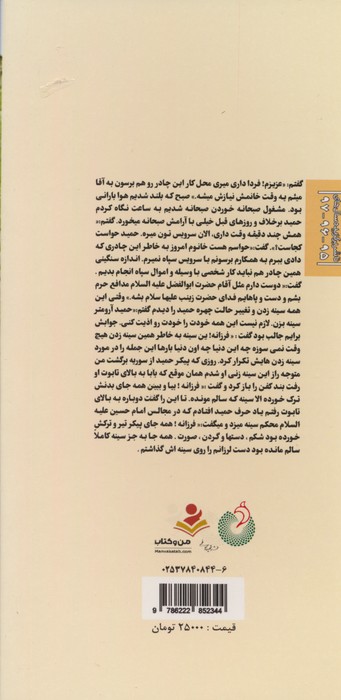 گفتم:«عزیزم؛ فردا داری میری محل کار این چادر رو هم برسون به آقا
میثم یه وقت خانمش نیازش میشه.» صبح که بلند شدیم هوا بارانی
بود. مشغول صبحانه خوردن صبحانه شدیم به ساعت نگاه کردم
حمید برخلاف و روزهای قبل خیلی با آرامش صبحانه میخورد. گفتم:«
همش چند دقیقه وقت داری، الان سرویس تون میره. حمید حواست
کجاست؟». گفت:«حواسم هست خانوم امروز به خاطر این چادری که
دادی ببرم به همکارم برسونم با سرویس سپاه نمیرم. اندازه سنگینی
همین چادر هم نباید کار شخصی با وسیله و اموال سپاه انجام بدیم .
گفت:«دوست دارم مثل آقام حضرت ابوالفضل علیه السلام مدافع حرم
بشم و دست و پاهایم فدای حضرت زینب علیها سلام بشه.» وقتی این
همه سینه زدن و تغییر حالت چهره حمید را دیدم گفتم:«حمید آرومتر
سینه بزن. لازم نیست این همه خودت رو اذیت کنی. جوابش
برایم جالب بود گفت :« فرزانه! این سینه به خاطر همین سینه زدن هیچ
وقت نمی سوزه چه این دنیا چه اون دنیا بارها این جمله را در مورد
سینه زدن هایش تکرار کرد. روزی که پیکر حمید از سوریه برگشت من
متوجه راز این سینه زنی او شدم همان موقع که بابا به بالای تابوت او
رفت بند کفن را باز کرد و گفت :« فرزانه ! بیا و ببین همه جای بدنش
ترک خورده الا سینه که سالم مونده. تا این را گفت دوباره به بالای
تابوت رفتم یاد حرف حمید افتادم که در مجالس امام حسین علیه
السلام محکم سینه میزد و میگفت:«فرزانه ! همه جای پیکر تیر و ترکش
خورده بود شکم . دستها و گردن . صورت . همه جا به جز سینه کاملاً
سالم مانده بود دست لرزانم را روی سینه اش گذاشتم .
من و کتاب
Manvaketab.com
۰۲۵۳۷۸۴۰۸۴۴-۶
9 786222 852344
قیمت : ۲۵۰۰۰ تومان